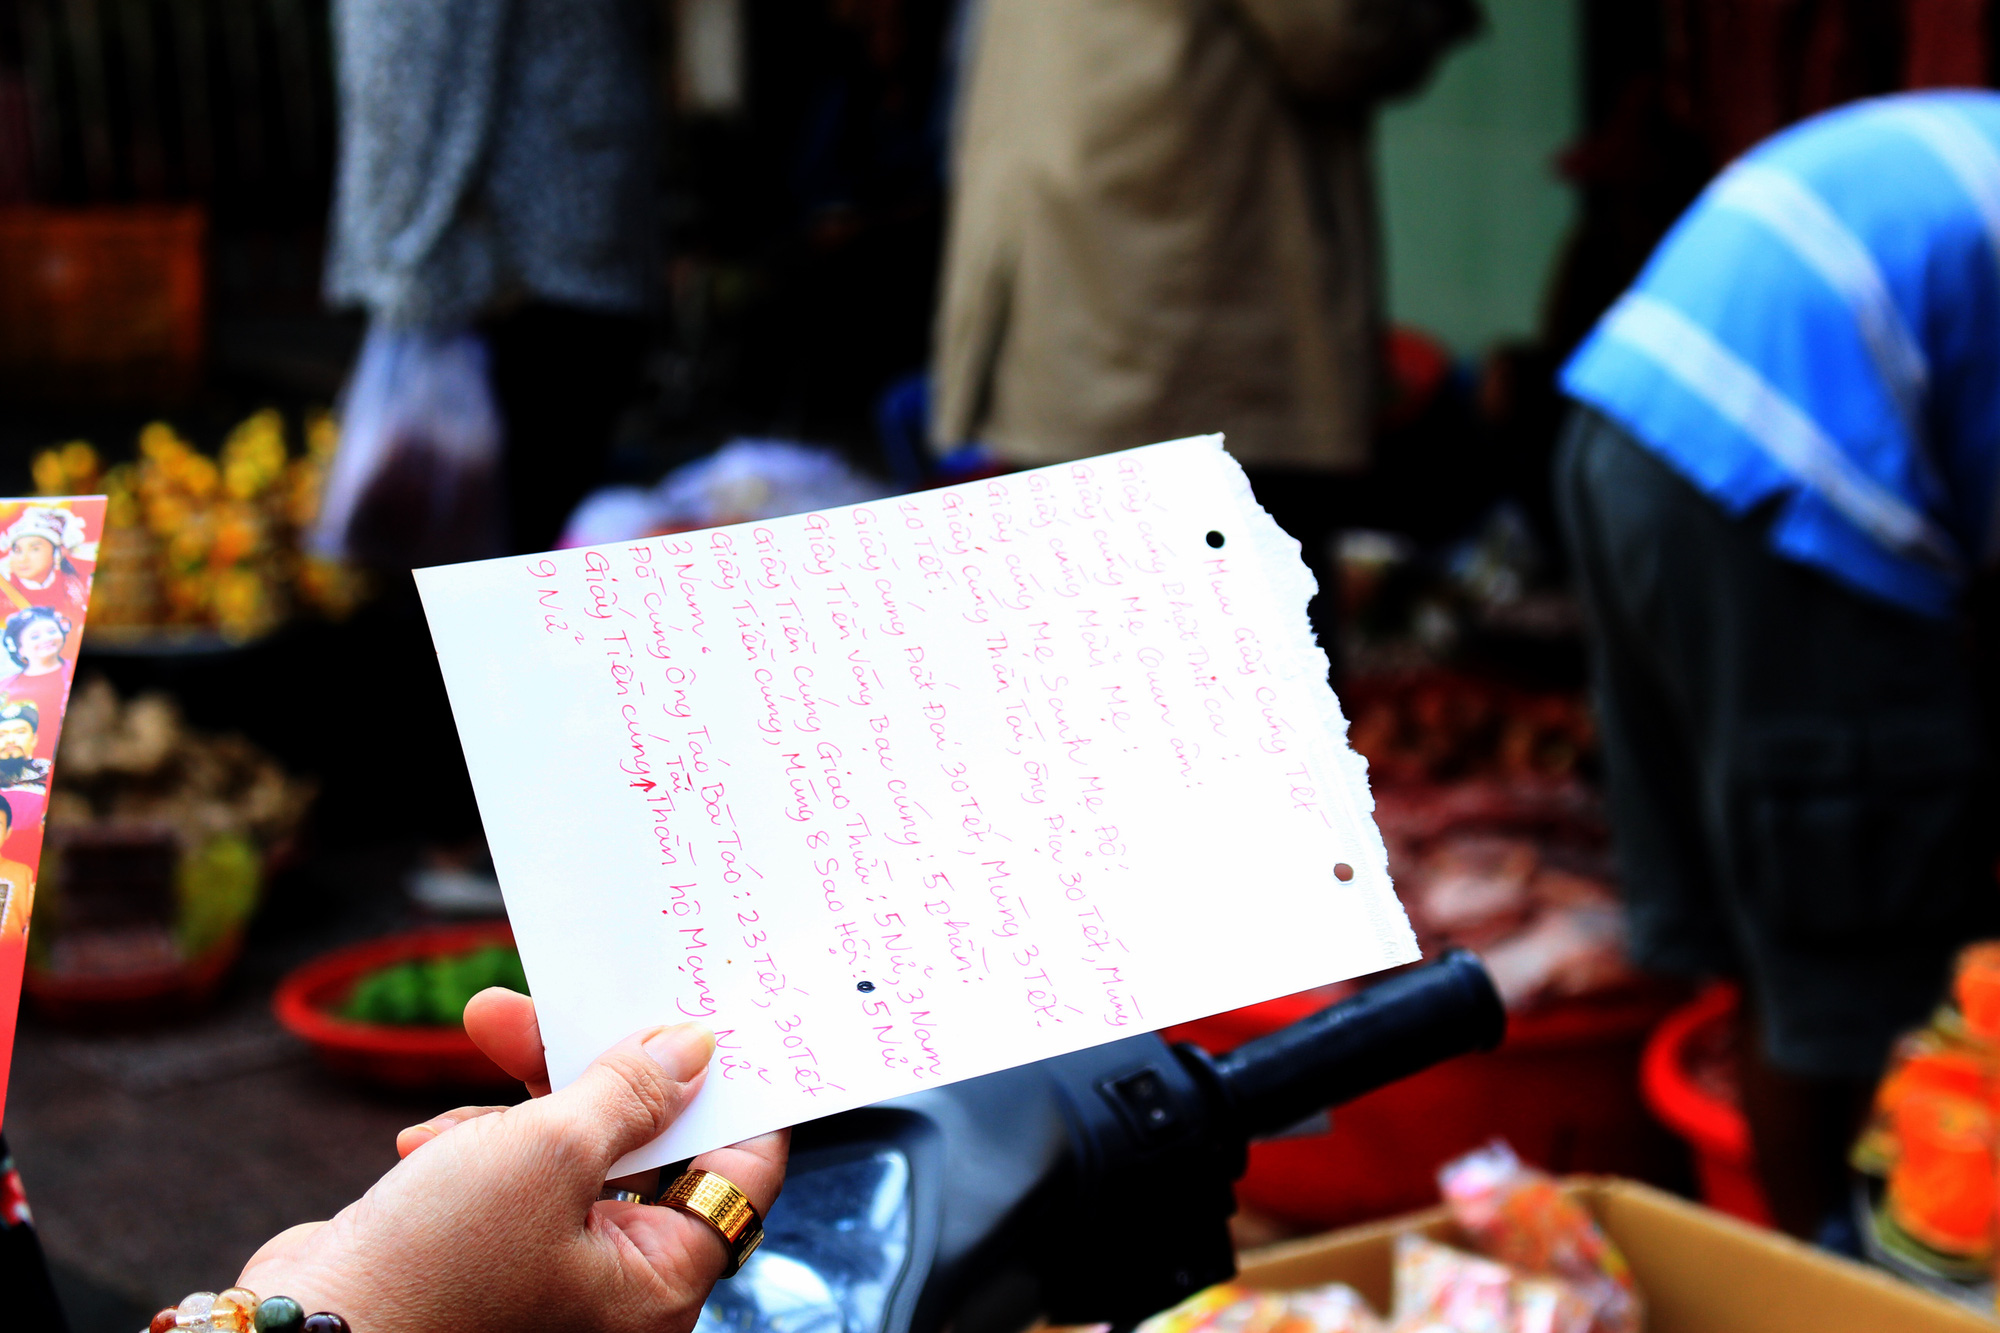 Mua Giấy Cúng Tết
Giấy cúng Phật Thít ca :
Giấy cúng Mẹ Quan âm :
Giấy cúng Mẹ Sanh Mẹ Độ :
Giấy cúng Mẫu Mẹ :
Giấy cúng Thần Tài, ông Địa 30 Tết, Mùng
10 Tết :
Giấy cúng Đất Đai 30 Tết, Mùng 3 Tết :
Giấy Tiền vàng Bạc cúng : 5 phần :
Giấy Tiền cúng Giao Thừa : 5 Nữ, 3 Nam
Giấy Tiền cúng, Mùng 8 Sao Hội : 5 Nữ
3 Nam
Đồ cúng ông Táo Bà Táo : 23 Tết, 30 Tết
Giấy Tiền cúng, Tài Thần hộ Mạng Nữ
9 Nữ